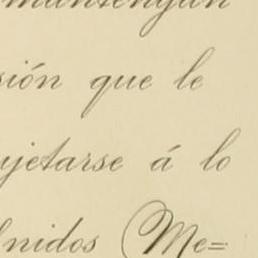 mantengan
sión que le
ujetarse á lo
nidos (Me=